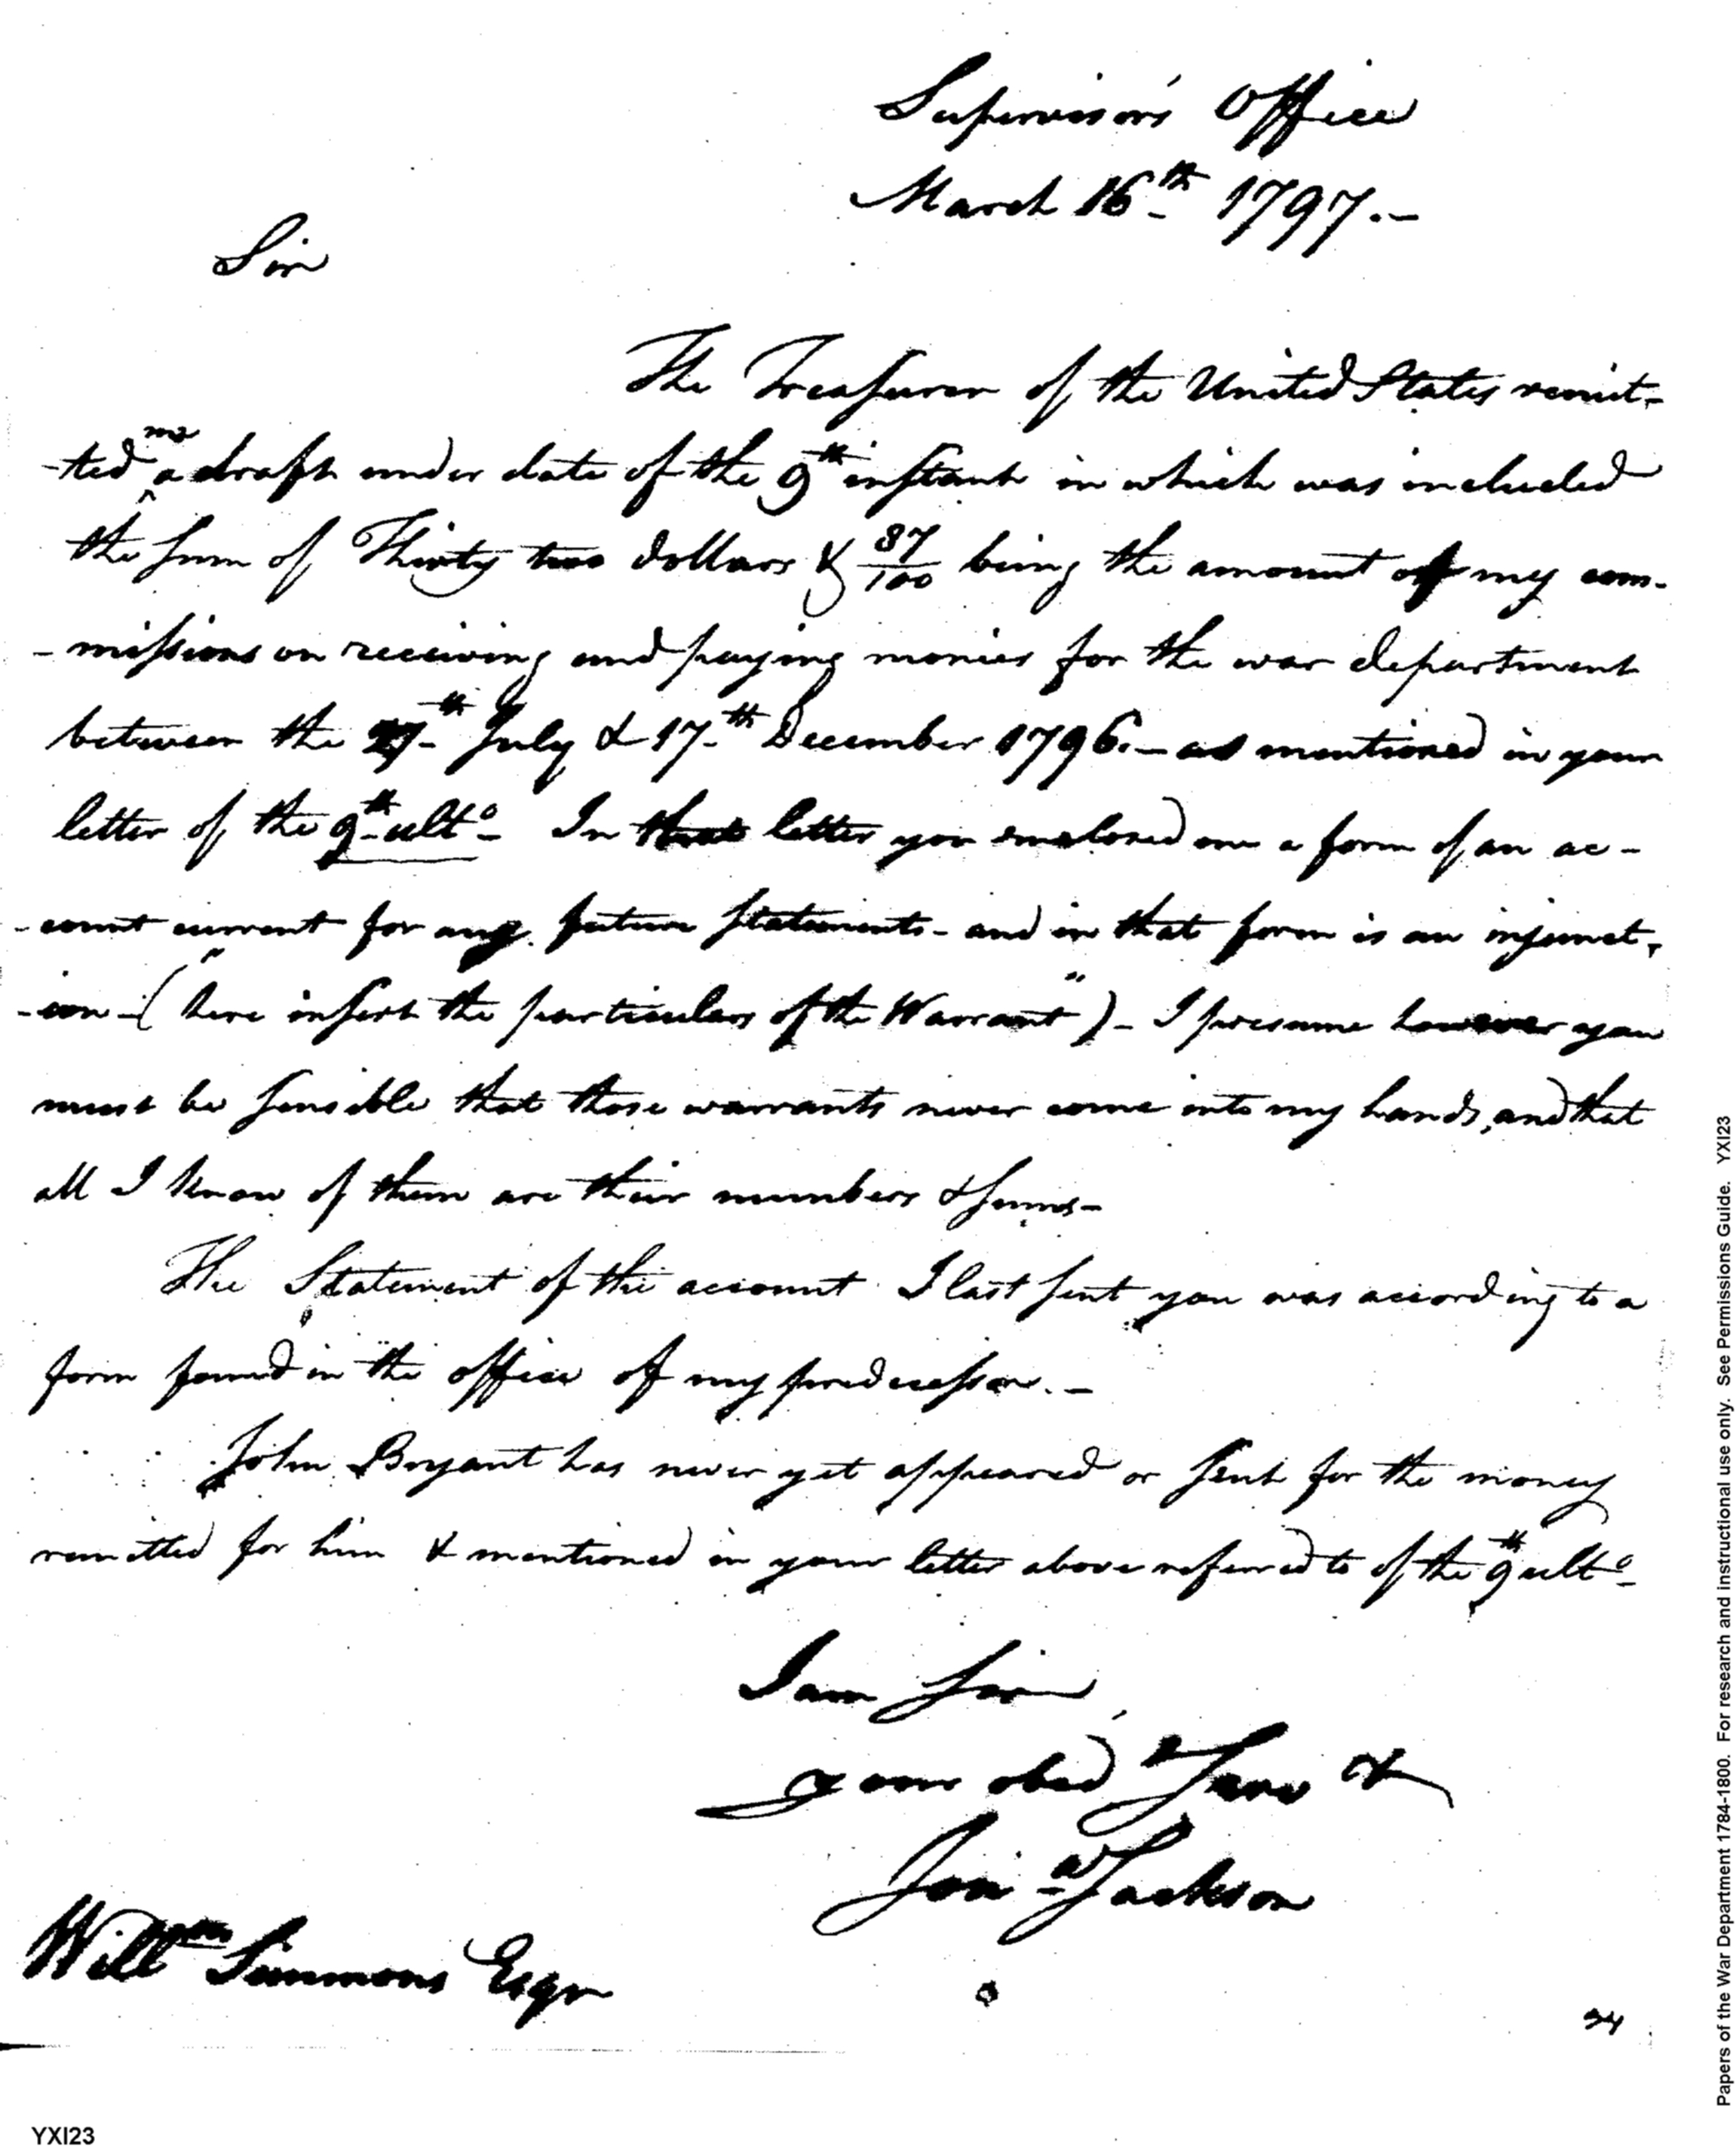 Supervisor's Office
March 16th 1797.-
Sir
The Treasurer of the United States remit-
me
-ted a draft under date of the 9th instant in which was included
the sum of Thirty two dollars & 87/100 being the amount of my com-
-missions on receiving and paying monies for the war department
between the th July & 17th December 1796.- as mentioned in your
letter of the 9th ulto- In that letter you enclosed me a form of an ac-
-count current for any future statements - and in that form is an injunct-
-ion - ("here insert the particulars of the Warrant") - I presume however you
must be sensible that those warrants never come into my hands, and that
all I know of them are their numbers & sums-
The Statement of the account I last sent you was according to a
form found in the office of my predecessor.-
John Bryant has never yet appeared or sent for the money
remitted for him & mentioned in your letter above referred to of the 9th ulto-
I am Sir
your obed Serv t
Jona Jackson
Willm Simmons Esqr
24
YXI23
Papers of the War Department 1784-1800. For research and instructional use only. See Permissions Guide. YXI23